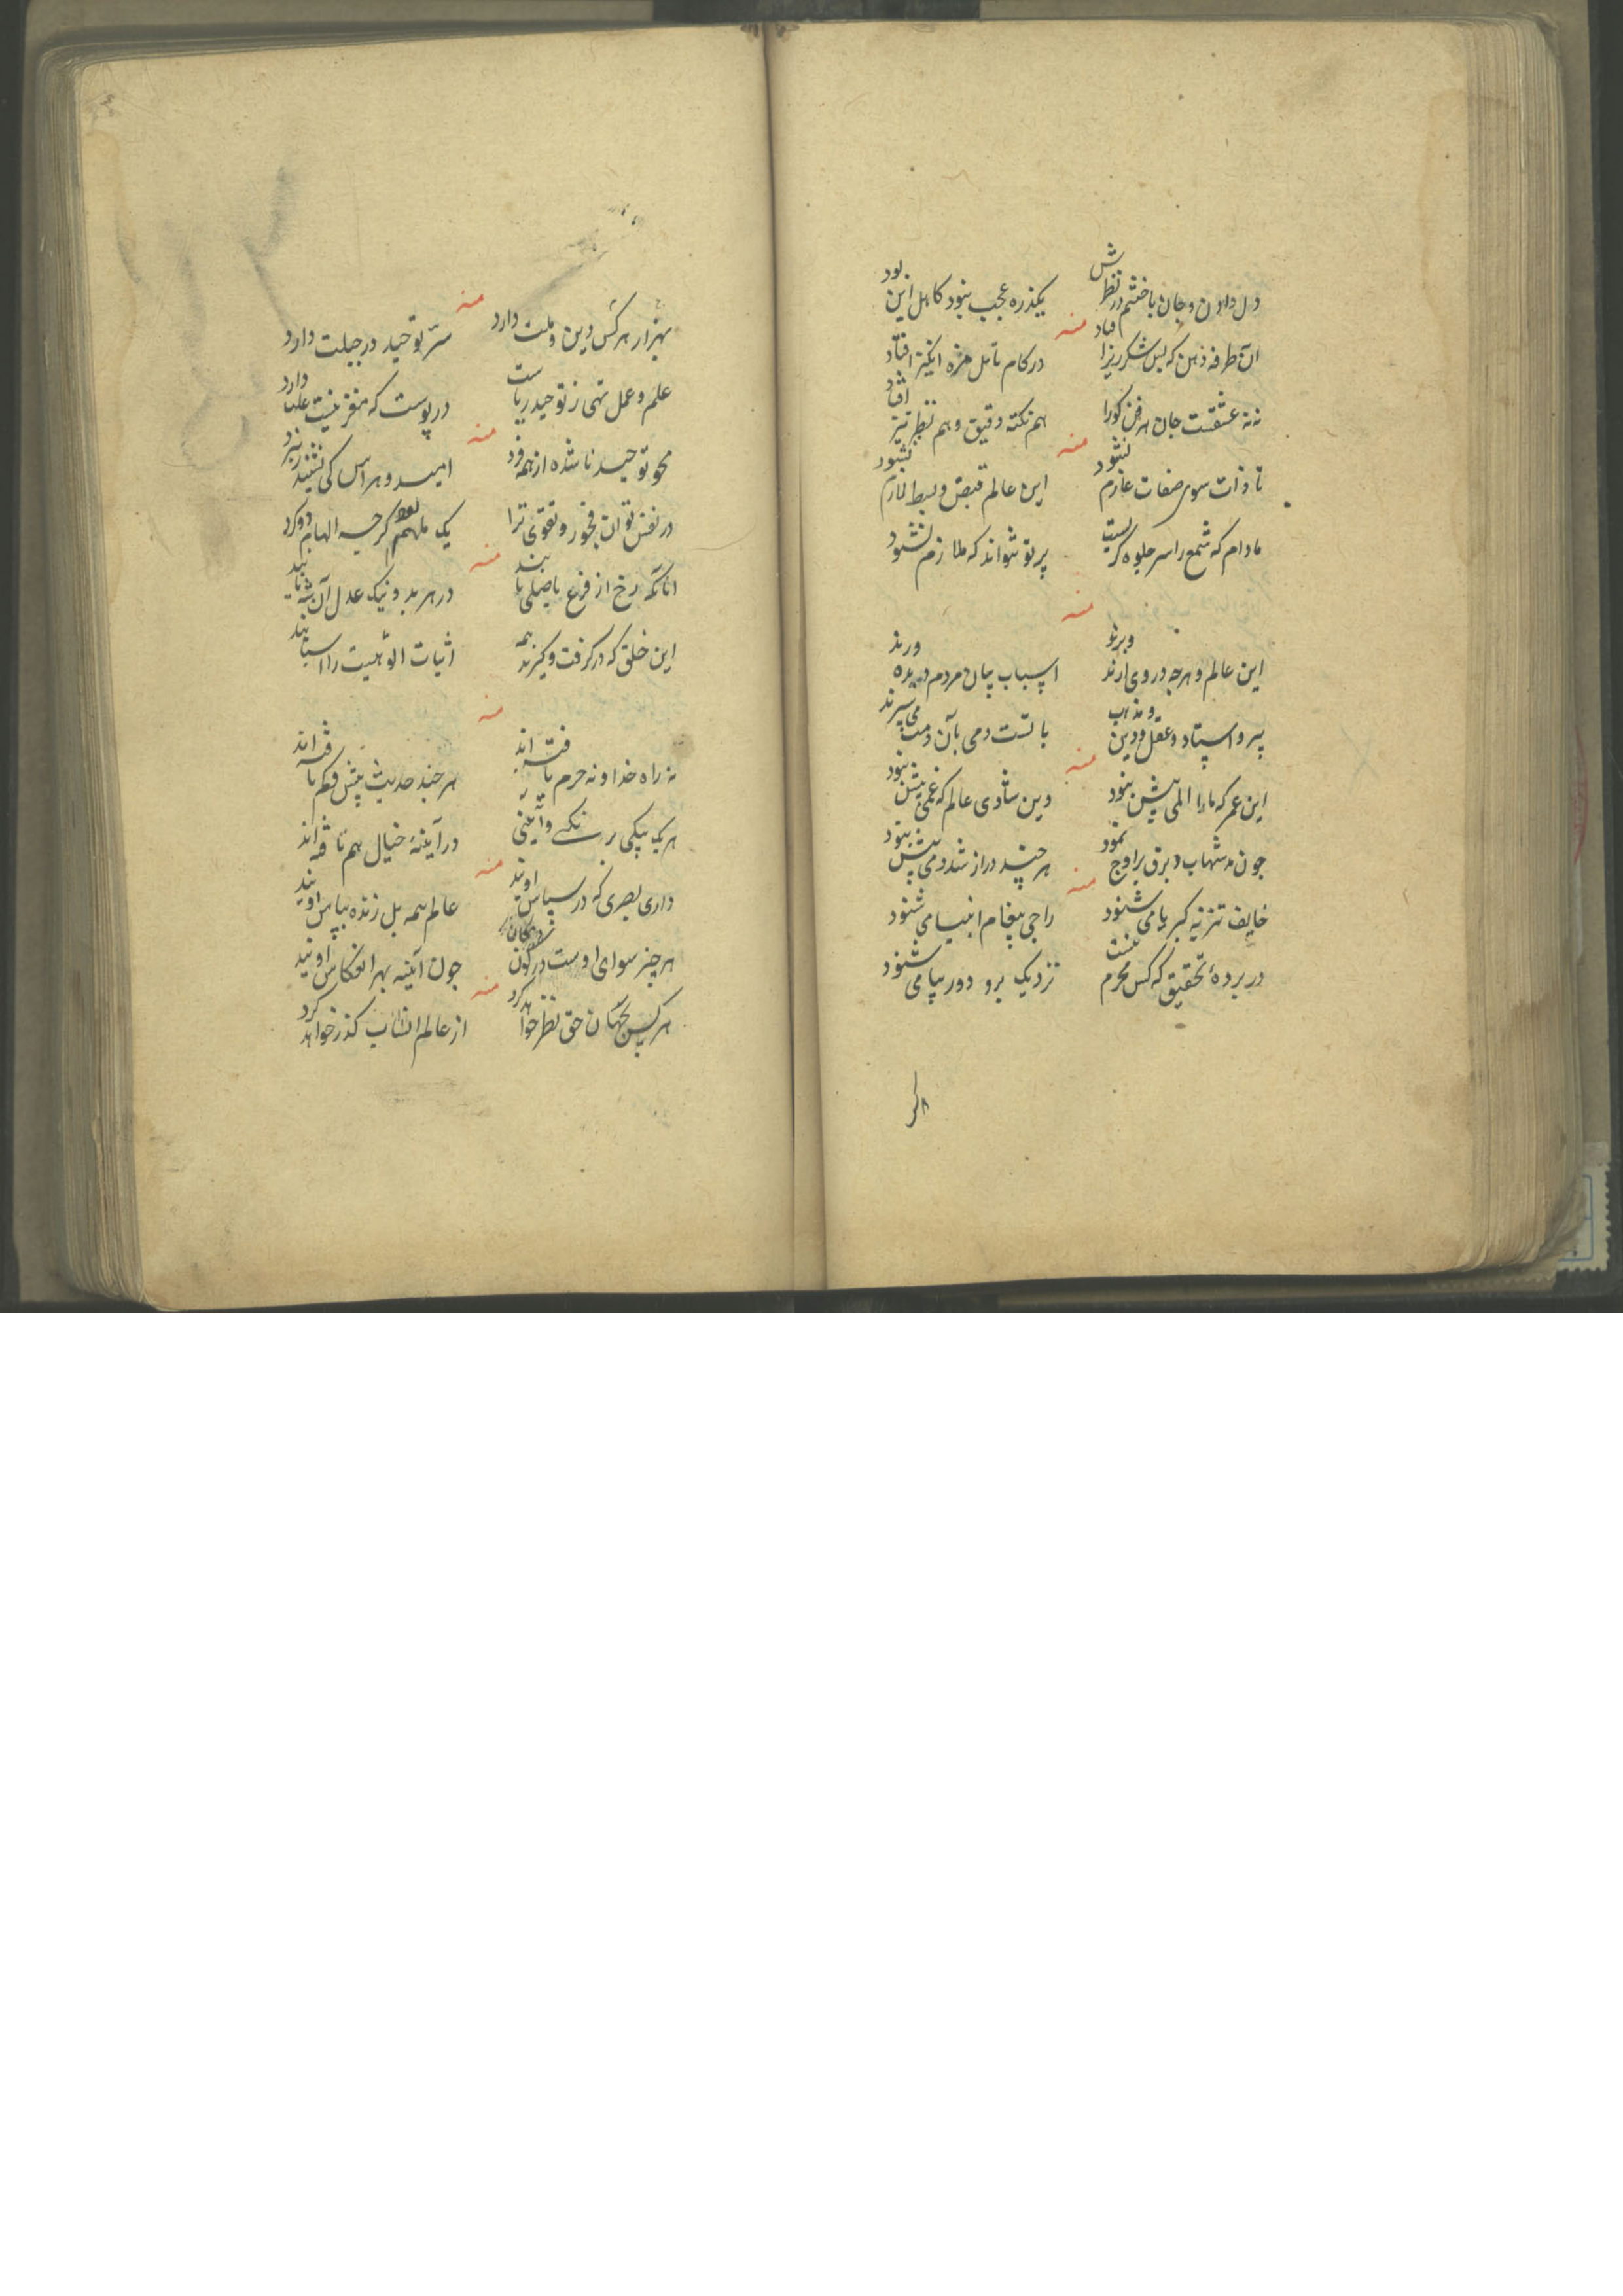 دل دادن و جان باختنم در نظرش یکذره عجب نبود کاهل این بود
منه
آن طرفه ذهن که لبش شکرریز افتاد در کام تامل مزه انگیز افتاد
نه عشقست جان هر فن کورا هم نکته دقیق و هم نظر تیز افتاد
منه
تا ذات سوی صفات عازم نشود این عالم قبض و بسط لازم نشود
مادام که شمع را سر جلوه گریست پرتو نتواند که ملازم نشود
منه
این عالم و هرچه در وی ارند و برند اسباب جهان مردم دیده ورند
پیر و استاد و عقل و دین و مذهب با تست دمی بآن دمت می سپرند
منه
این عمر که مارا المی بیش نبود وین شادی عالم که غمی بیش نبود
چون مد شهاب و برق بر اوج نمود هر چند دراز شد دمی بیش نبود
منه
خایف تنزیه کبریا می شنود راجی پیغام انبیا می شنود
در پرده تحقیق که کس محرم نیست نزدیک برو دور بیا می شنود
منه
بهزار هر کس دین و ملت دارد سر توحید در جبلت دارد
علم و عمل تهی ز توحید ریاست در پوست که مغز نیست علت دارد
منه
محو توحید ناشده از همه فرد امید و هراس کی نشیند ز نبرد
در نفس تو ان فجور و تقوی ترا یک ملهم بود گرچه الهام دو کرد
منه
انانکه رخ از فرع باصلی بابند در هر بد و نیک عدل آن شه یابند
این خلق که در گرفت و گیرند همه اثبات الوهیت را اسبابند
منه
نه راه خدا و نه حرم یافته اند هر چند حدیث بیش و کم بافته اند
هر یک بیکی رنگی و آئینی در آینه خیال هم تافته اند
منه
داری بصری که در سپاس اویند عالم همه بل زنده بپاس اویند
هر چیز سوای اوست در کون و مکان چون آینه بهر انعکاس اویند
منه
هر کس بجهان حق نظر خواهد کرد از عالم انتساب گذر خواهد کرد